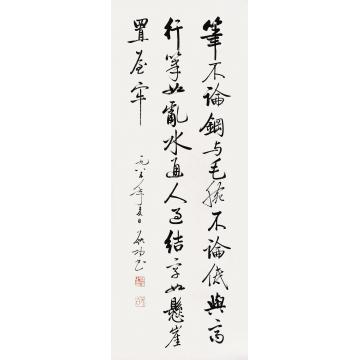 筆不論鋼与毛腕不論低與高
行筆如亂水通人過結字如懸崖
置屋牢
一九八年夏日啟功書